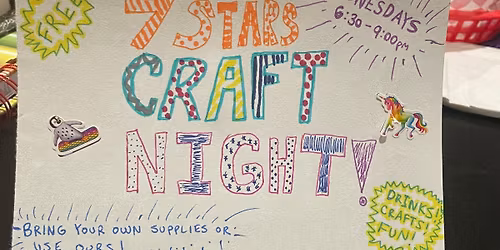 FREE
7 STARS
WEDNESDAYS
6:30-9:00pm
CRAFT
NIGHT!
DRINKS!
CRAFTS!
FUN!
BRING YOUR OWN SUPPLIES OR
USE OURS!